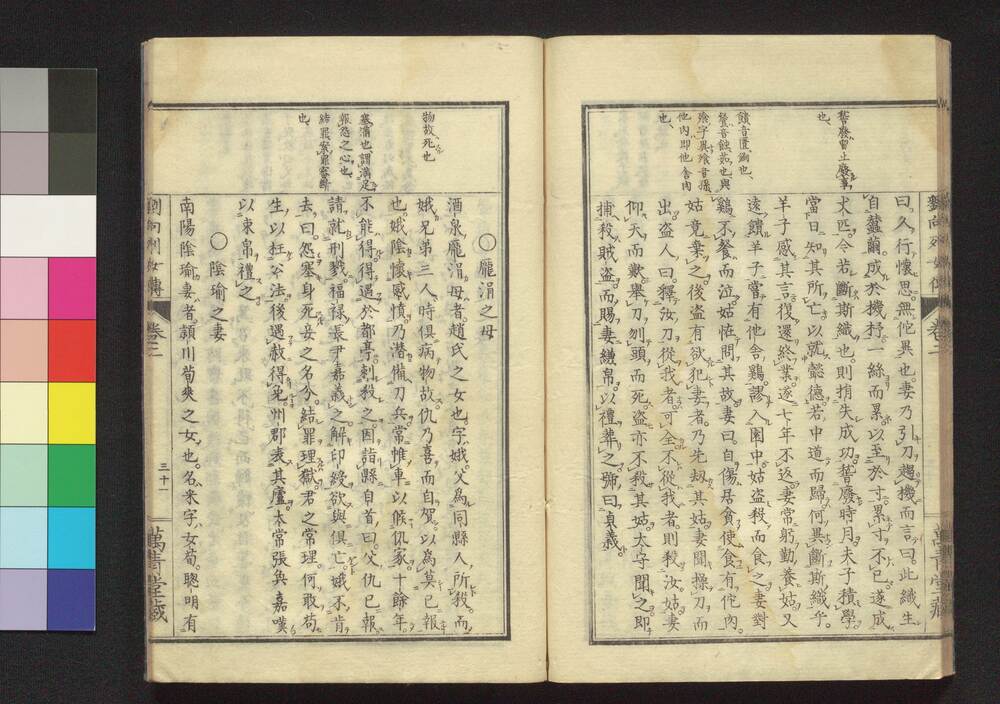 誓廢留止廢事
也
饋音匱餉也
也
曰。久行懷思。無佗異也。妻乃引刀趨機而言曰。此織生
自蠶繭。成於機杼。一絲而累以至於寸。累寸不已。遂成
丈匹。今若斷斯織也。則捐失成功。稽廢時月。夫子積學。
當日知其所亡。以就懿德。若中道而歸。何異斷斯織乎。
羊子感其言。復還終業。遂七年不返。妻常躬勤養姑。又
遠饋羊子。嘗有他舍雞。謬入園中。姑盜殺而食之。妻對
雞不餐而泣。姑怪問其故。妻曰。自傷居貧。使食有佗肉。
姑竟棄之。後盜有欲犯妻者。乃先刼其姑。妻聞操刀而
出。盜人曰。釋汝刀從我者可全。不從我者。則殺汝姑。妻
仰天而歎。舉刀刎頭而死。盜亦不殺其姑。太守聞之。即
捕殺賊盜。而賜妻縑帛。以禮葬之。號曰貞義。
萬青堂藏
物故死也
塞滿也謂滿足
報怨之心也
也
○龐淯之母
酒泉龐淯母者。趙氏之女也。字娥。父為同縣人所殺。而
娥兄弟三人。時俱病物故。仇乃喜而自賀。以為莫已報
也。娥陰懷感憤。乃潛備刀兵。常帷車以候仇家。十餘年。
不能得。後遇於都亭。刺殺之。因詣縣自首曰。父仇已報。
請就刑戮。福祿長尹嘉義之。解印綬欲與俱亡。娥不肯
去。曰。怨塞身死。妾之名分。結罪理獄。君之常理。何敢苟
生。以枉公法。後遇赦得免。州郡表其廬。太常張奐嘉嘆。
以束帛禮之
○陰瑜之妻
南陽陰瑜妻者。潁川荀爽之女也。名采。字女荀。聰明有
劉向列女傳 卷二
三十一
萬青堂藏